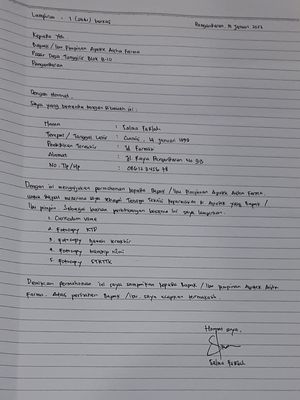 Lampiran : 1 (satu) berkas
Pangandaran, 14 Januari 2022
Kepada Yth
Bapak / Ibu Pimpinan Apotek Aisha Farma
Pasar Desa Tunggilis Blok B.10
Pangandaran
Dengan Hormat,
Saya yang bertanda tangan dibawah ini :
Nama : Salwa
Tempat / Tanggal Lahir : Ciamis, 14 Januari 1999
Pendidikan Terakhir : D3 Farmasi
Alamat : Jl. Raya Pangandaran No
No. Tlp / Hp :
Dengan ini mengajukan permohonan kepada Bapak / Ibu Pimpinan Apotek Aisha Farma,
untuk dapat Tenaga Teknis Kefarmasian di Apotek yang Bapak /
Ibu pimpin. Sebagai bahan pertimbangan bersama ini saya lampirkan :
1. Curriculum Vitae
2. Fotocopy KTP
3. Fotocopy Ijazah terakhir
4. Fotocopy transkip nilai
5. Fotocopy STRTTK
Demikian permohonan ini saya sampaikan kepada Bapak / Ibu Pimpinan Apotek Aisha
Farma. Atas perhatian Bapak / Ibu, saya ucapkan terimakasih.
Hormat saya,
Salwa